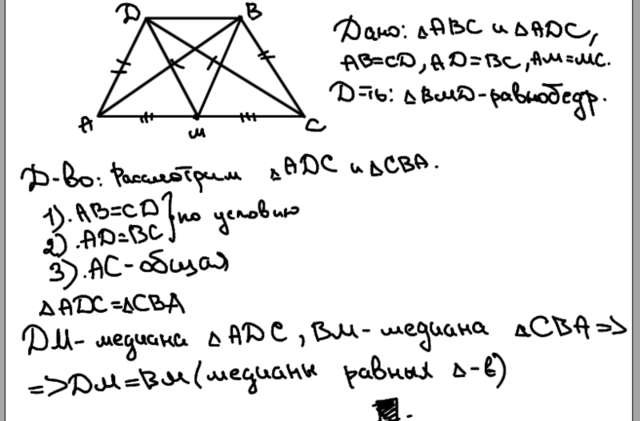 D B
A M C
Дано: △ABC и △ADC,
AB=CD, AD=BC, AM=MC.
Д-ть: △BMD-равнобедр.
Д-во: Рассмотрим △ADC и △CBA.
1). AB=CD } по условию
2). AD=BC
3). AC-общая
△ADC=△CBA
DM-медиана △ADC, BM-медиана △CBA=>
=>DM=BM (медианы равных △-в)